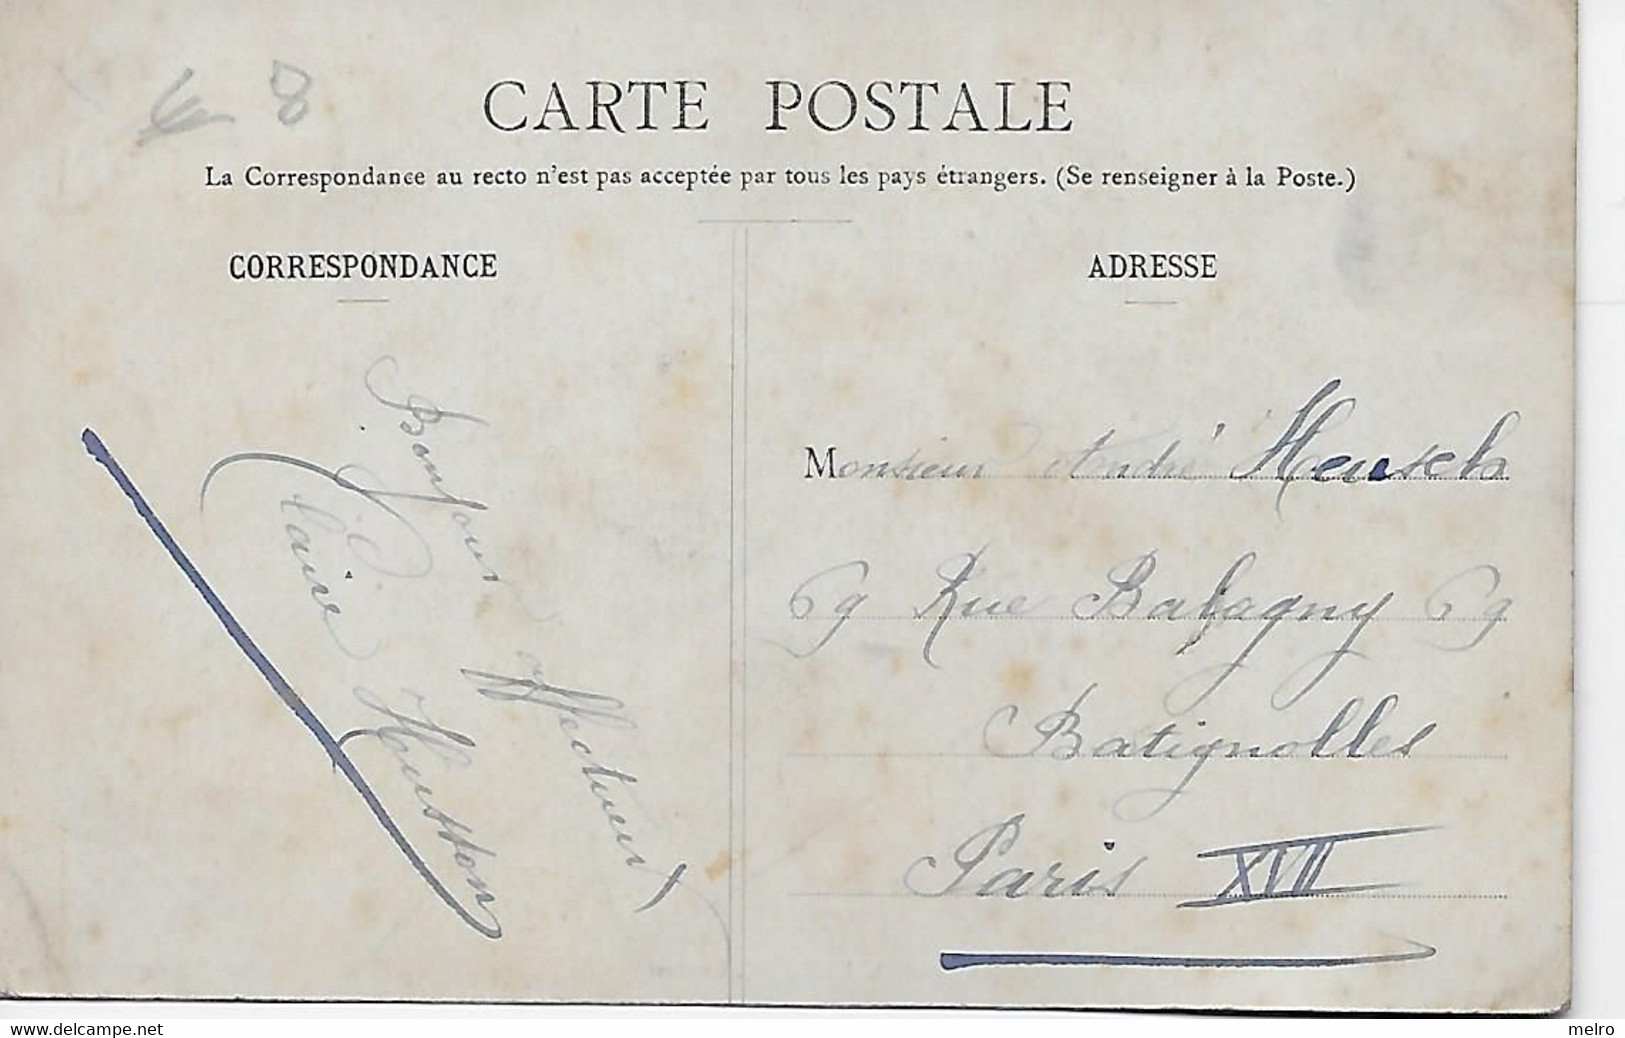 CARTE POSTALE
La Correspondance au recto n'est pas acceptée par tous les pays étrangers. (Se renseigner à la Poste.)
CORRESPONDANCE
Bonjour affectueux
Claire Husson
ADRESSE
Monsieur André Heusch
69 Rue Balagny 69
Batignolles
Paris XVII
www.delcampe.net
melro